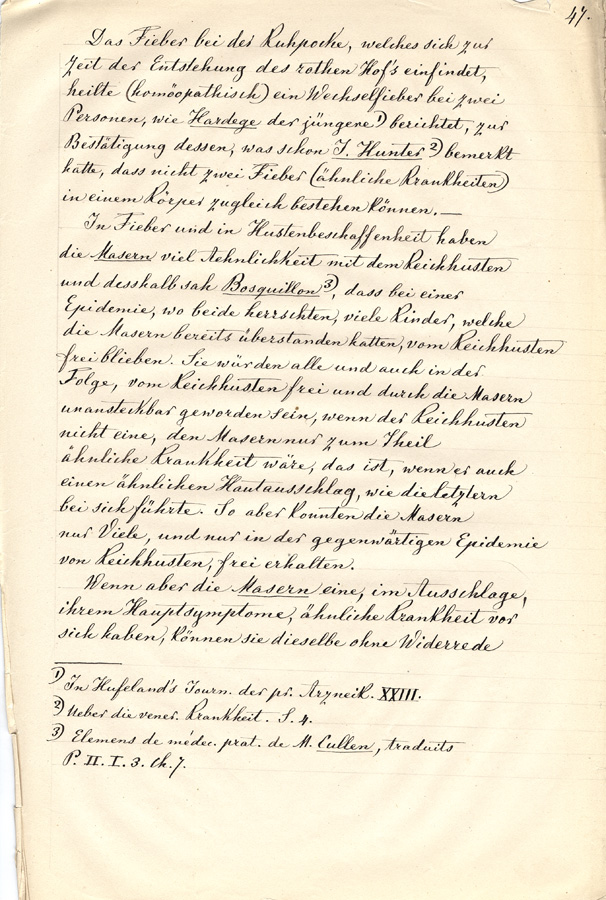 47.
Das Fieber bei der Kuhpocke, welches sich zur
Zeit der Entstehung des rothen Hof's einfindet,
heilte (homöopathisch) ein Wechselfieber bei zwei
Personen, wie Hardege der jüngere 1) berichtet, zur
Bestätigung dessen, was schon J. Hunter 2) bemerkt
hatte, dass nicht zwei Fieber (ähnliche Krankheiten)
in einem Körper zugleich bestehen können. —
In Fieber und in Hustenbeschaffenheit haben
die Masern viel Aehnlichkeit mit dem Keichhusten
und desshalb sah Bosquillon 3), dass bei einer
Epidemie, wo beide herrschten, viele Kinder, welche
die Masern bereits überstanden hatten, vom Keichhusten
frei blieben. Sie würden alle und auch in der
Folge, vom Keichhusten frei und durch die Masern
unansteckbar geworden sein, wenn der Keichhusten
nicht eine, den Masern nur zum Theil
ähnliche Krankheit wäre, das ist, wenn er auch
einen ähnlichen Hautausschlag, wie die letztern
bei sich führte. So aber konnten die Masern
nur Viele, und nur in der gegenwärtigen Epidemie
von Keichhusten, frei erhalten.
Wenn aber die Masern eine, im Ausschlage,
ihrem Hauptsymptome, ähnliche Krankheit vor
sich haben, können sie dieselbe ohne Widerrede
1) In Hufeland's Journ. der pr. Arzneik. XXIII.
2) Ueber die vener. Krankheit. S. 4.
3) Elemens de médec. prat. de M. Cullen, traduits
P. II. I. 3. Ch. 7.